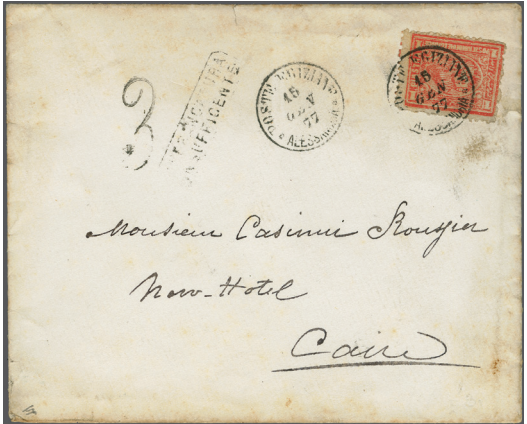 3
AFFRANCATURA
INSUFFICENTE
POSTE EGIZIANE
15
GEN
77
ALESSANDRIA
POSTE EGIZIANE
15
GEN
77
Monsieur Casimir Rougier
New-Hotel
Caire